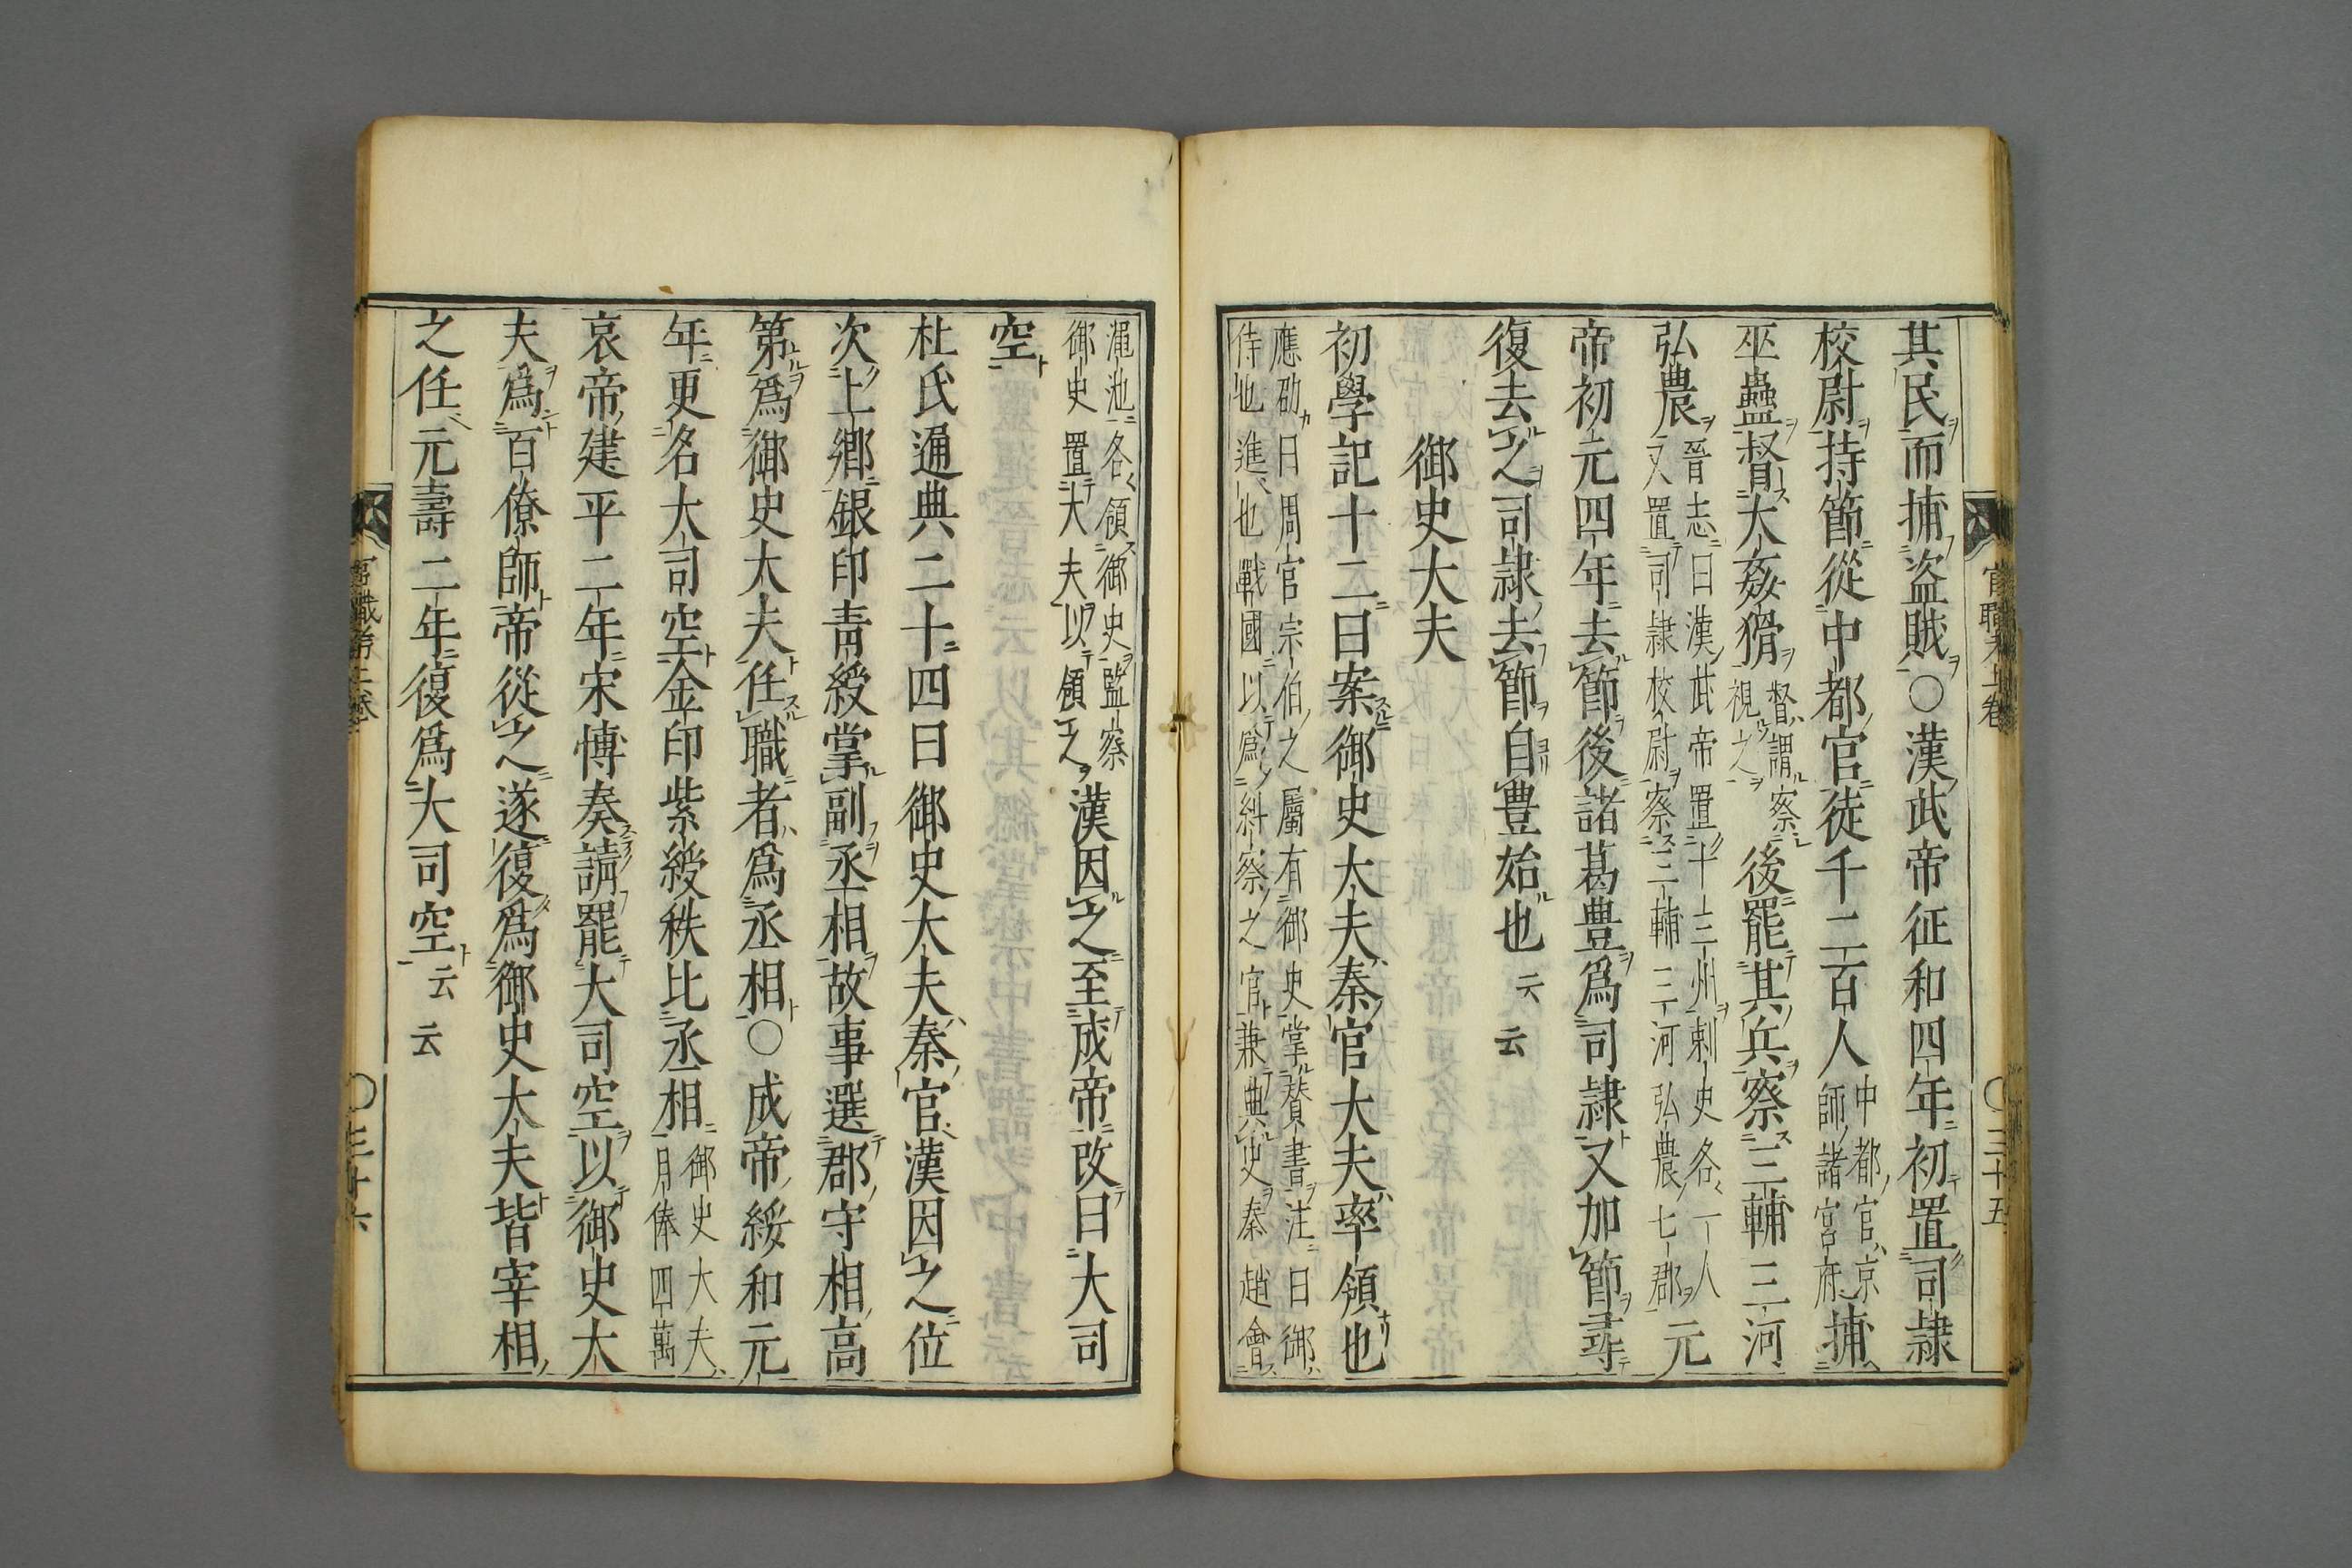 其民而捕盗賊○漢武帝征和四年初置司隷
校尉持節從中都官徒千二百人中都官京師諸宮府捕
巫蠱督大姦猾督謂察視之後罷其兵察三輔三河
弘農晉志曰漢武帝置十三州刺史各一人又置司隷校尉察三輔三河弘農七郡元
帝初元四年去節後諸葛豊爲司隷又加節尋
復去之司隷去節自豊始也云云
御史大夫
初學記十二曰案御史大夫秦官大夫率領也
應劭曰周官宗伯之屬有御史掌賛書注曰御侍也進也戰國以爲糾察之官兼典史秦趙會
澠池各領御史監察御史置大夫以領之漢因之至成帝改曰大司
空
杜氏通典二十四曰御史大夫秦官漢因之位
次上卿銀印青綬掌副丞相故事選郡守相高
第爲御史大夫任職者爲丞相○成帝綏和元
年更名大司空金印紫綬秩比丞相御史大夫月俸四萬
哀帝建平二年宋博奏請罷大司空以御史大
夫爲百僚師帝從之遂復爲御史大夫皆宰相
之任元壽二年復爲大司空云云